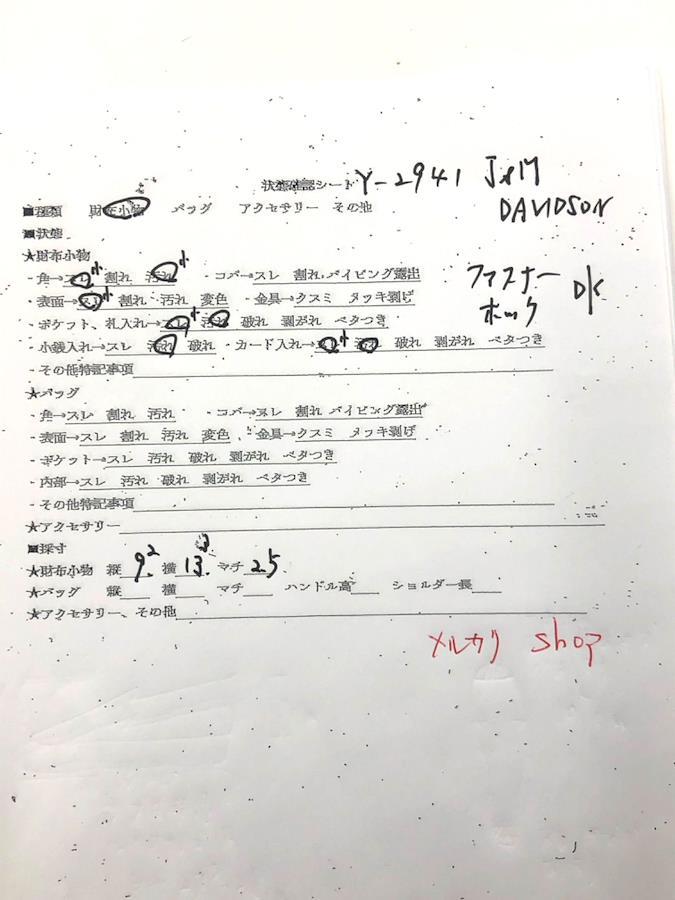 状態確認シート Y-2941 J&M
DAVIDSON
■種類 財布小物 バッグ アクセサリー その他
■状態
★財布小物
・角→スレ小 割れ 汚れ小 ・コバ→スレ 割れ パイピング露出
ファスナー
ホック OK
・表面→スレ小 割れ 汚れ 変色 ・金具→クスミ メッキ剥げ
・ポケット、札入れ→スレ小 汚れ 破れ 剥がれ ベタつき
・小銭入れ→スレ 汚れ 破れ ・カード入れ→スレ小 汚れ 破れ 剥がれ ベタつき
・その他特記事項
★バッグ
・角→スレ 割れ 汚れ ・コバ→スレ 割れ パイピング露出
・表面→スレ 割れ 汚れ 変色 ・金具→クスミ メッキ剥げ
・ポケット→スレ 汚れ 破れ 剥がれ ベタつき
・内部→スレ 汚れ 破れ 剥がれ ベタつき
・その他特記事項
★アクセサリー
■採寸
★財布小物 縦 9.2 横 13. マチ 2.5
★バッグ 縦 横 マチ ハンドル高 ショルダー長
★アクセサリー、その他
メルカリ shop